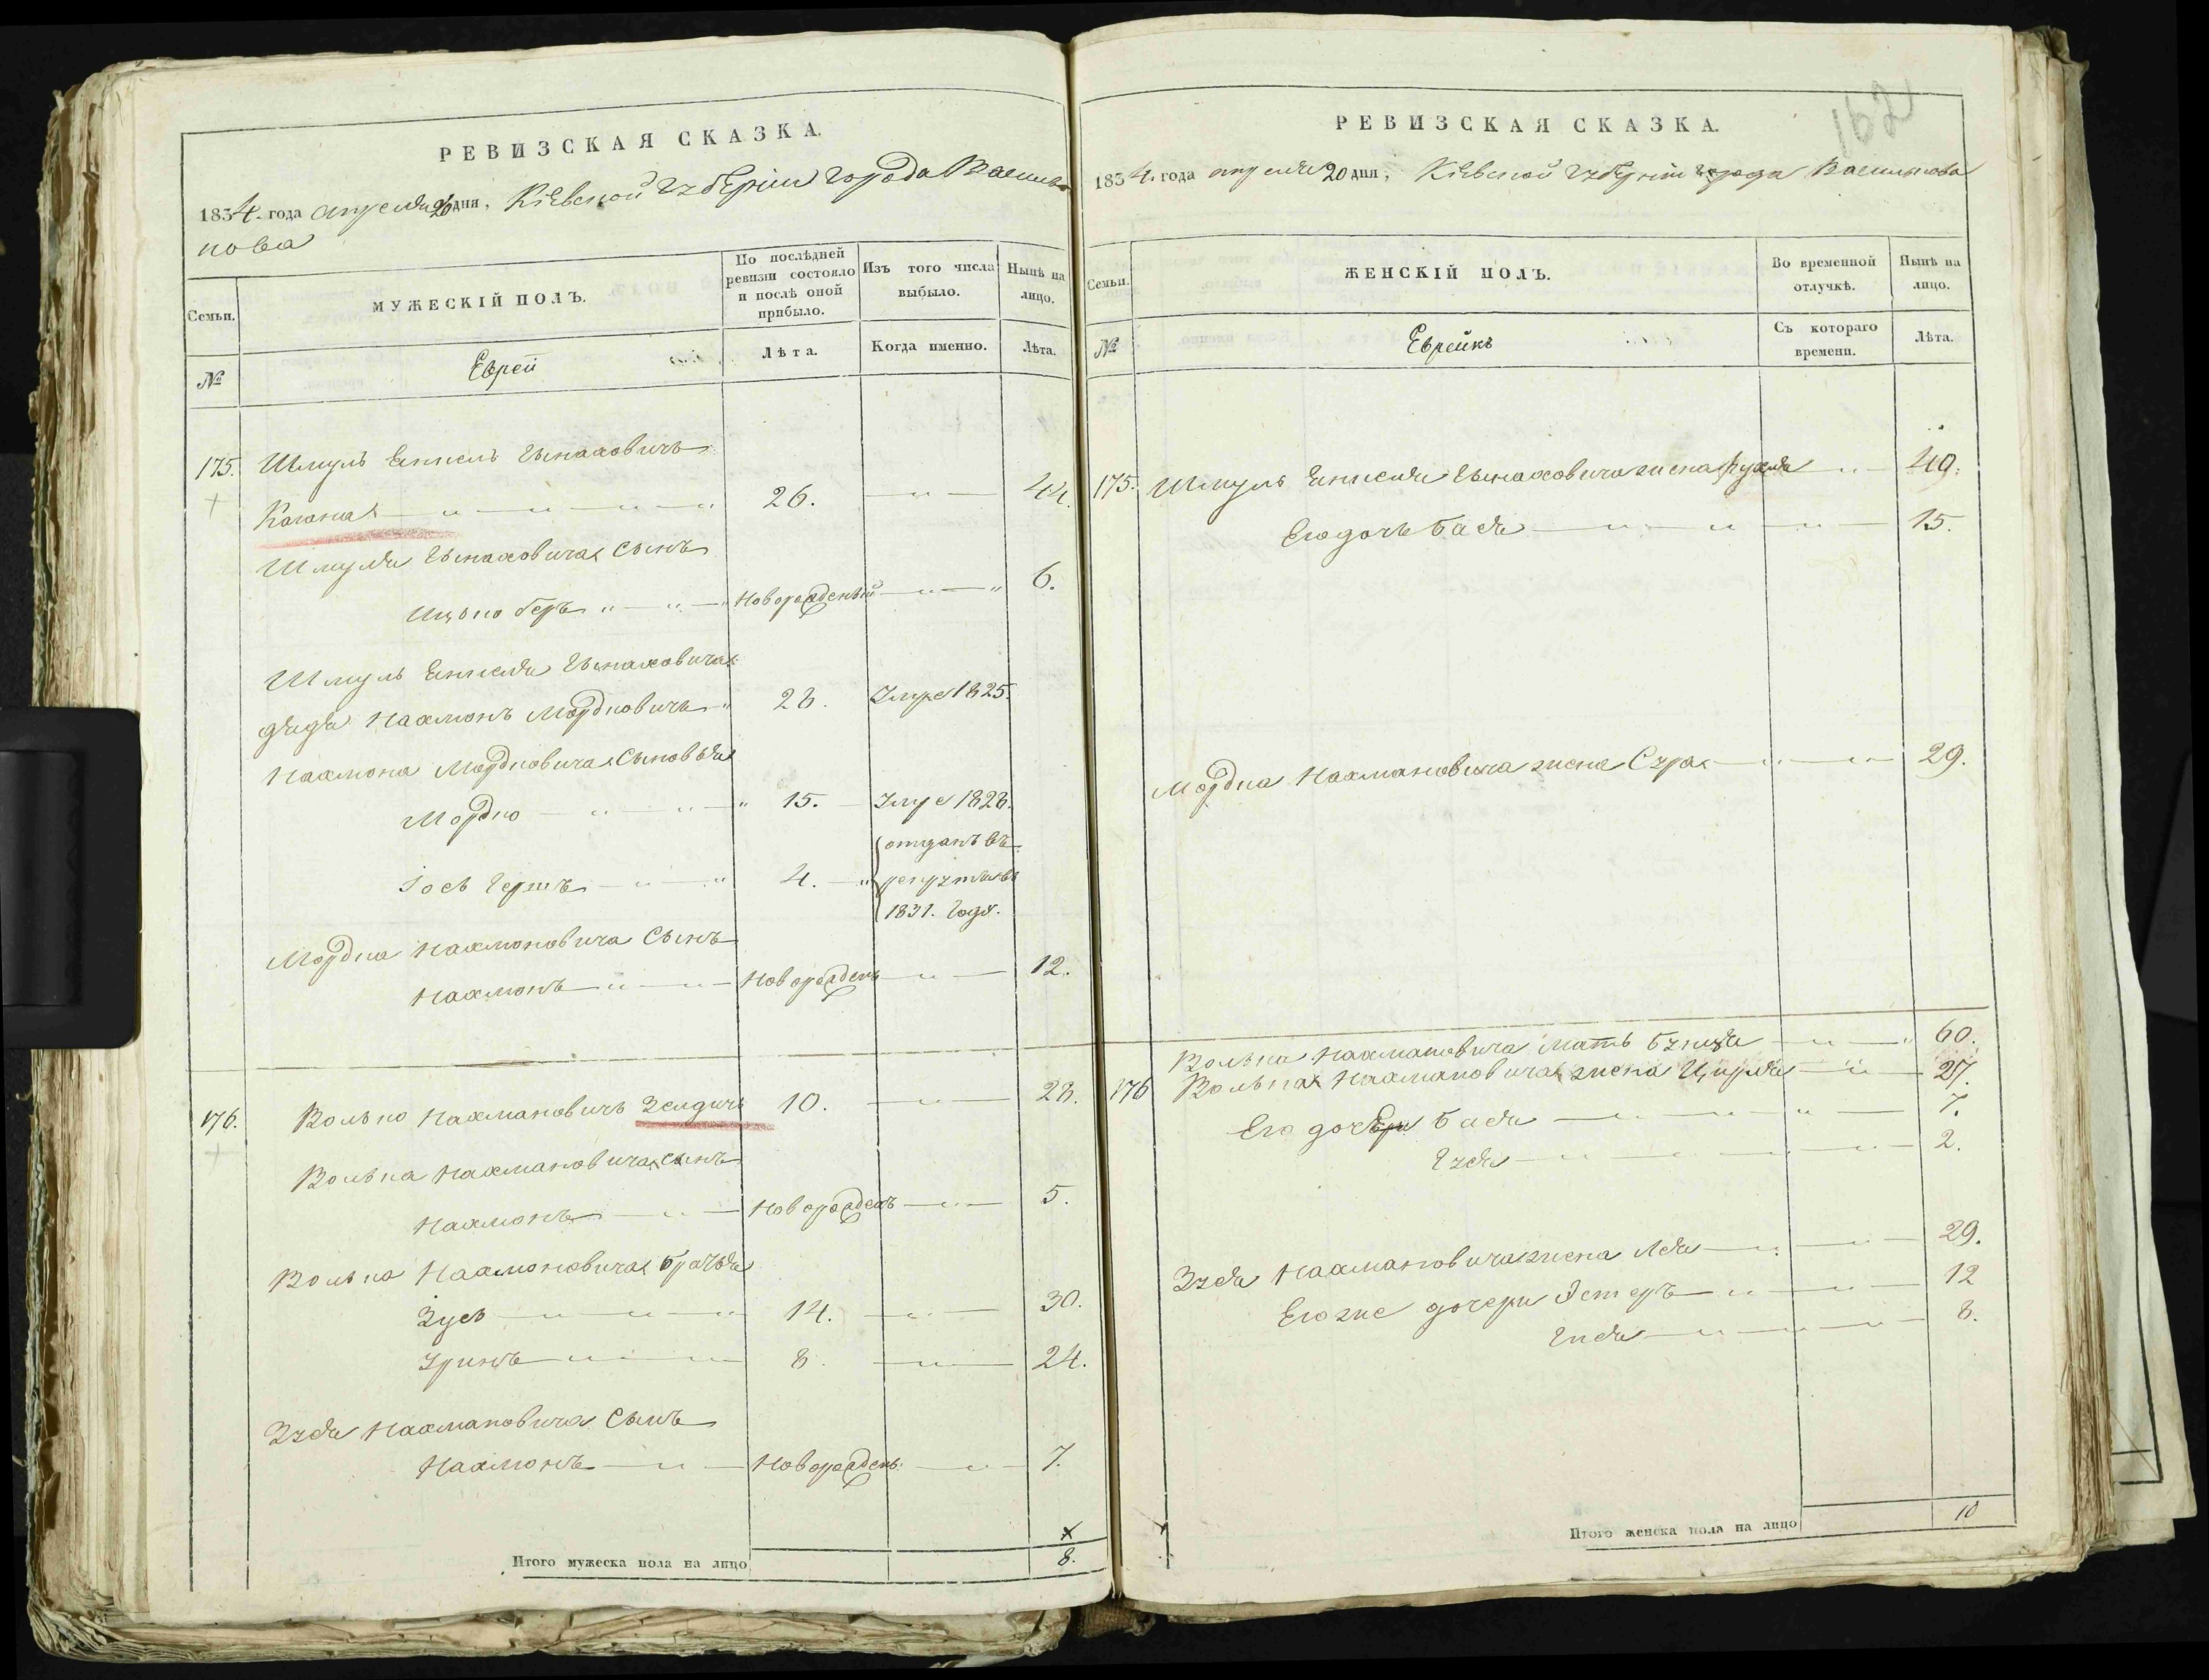 РЕВИЗСКАЯ СКАЗКА.
1834. года апреля 20 дня, Кіевской Губерніи города Василь
кова
Семьи.
МУЖЕСКІЙ ПОЛЪ.
По послѣдней ревизіи состояло и послѣ оной прибыло.
Изъ того числа выбыло.
Нынѣ на лицо.
№
Еврей
Лѣта.
Когда именно.
Лѣта.
175. Шмуль Янкель Гынаховичъ
Когона 26. 44.
Шмуля Гынаховича сынъ
Ицько беръ Новорожденый 6.
Шмуль Янкеля Гынаховича
дядя Нахмонъ Мордковичъ 28. Умре 1825.
Нахмона Мордковича Сыновья
Мордко 15. Умре 1828.
Іось Гершъ 4. отданъ въ
рекруты въ
1831. году.
Мордка Нахмоновича Сынъ
Нахмонъ Новорожденъ 12.
176. Волько Нахмановичъ Зелдичъ 10. 28.
Волька Нахмановича сынъ
Нахмонъ Новорожденъ 5.
Волька Нахмоновича братья
Зусь 14. 30.
Уринъ 8. 24.
Зуся Нахмановича Сынъ
Нахмонъ Новорожденъ. 7.
Итого мужеска пола на лицо 8.
162
РЕВИЗСКАЯ СКАЗКА.
1834. года апреля 20 дня, Кіевской Губерніи города Василькова
Семьи.
ЖЕНСКІЙ ПОЛЪ.
Во временной отлучкѣ.
Нынѣ на лицо.
№
Еврейкъ
Съ котораго времени.
Лѣта.
175. Шмуль Янкеля Гынаховича жена Рухля 40.
Его дочь Бася 15.
Мордка Нахмановича жена Сура 29.
Волька Нахмановича мать 60.
176 Волька Нахмановича жена Цирля 27.
Его дочери Бася 7.
Гуся 2.
Зуся Нахмановича жена Лея 29.
Его же дочери Эстеръ 12
8.
Итого женска пола на лицо 10